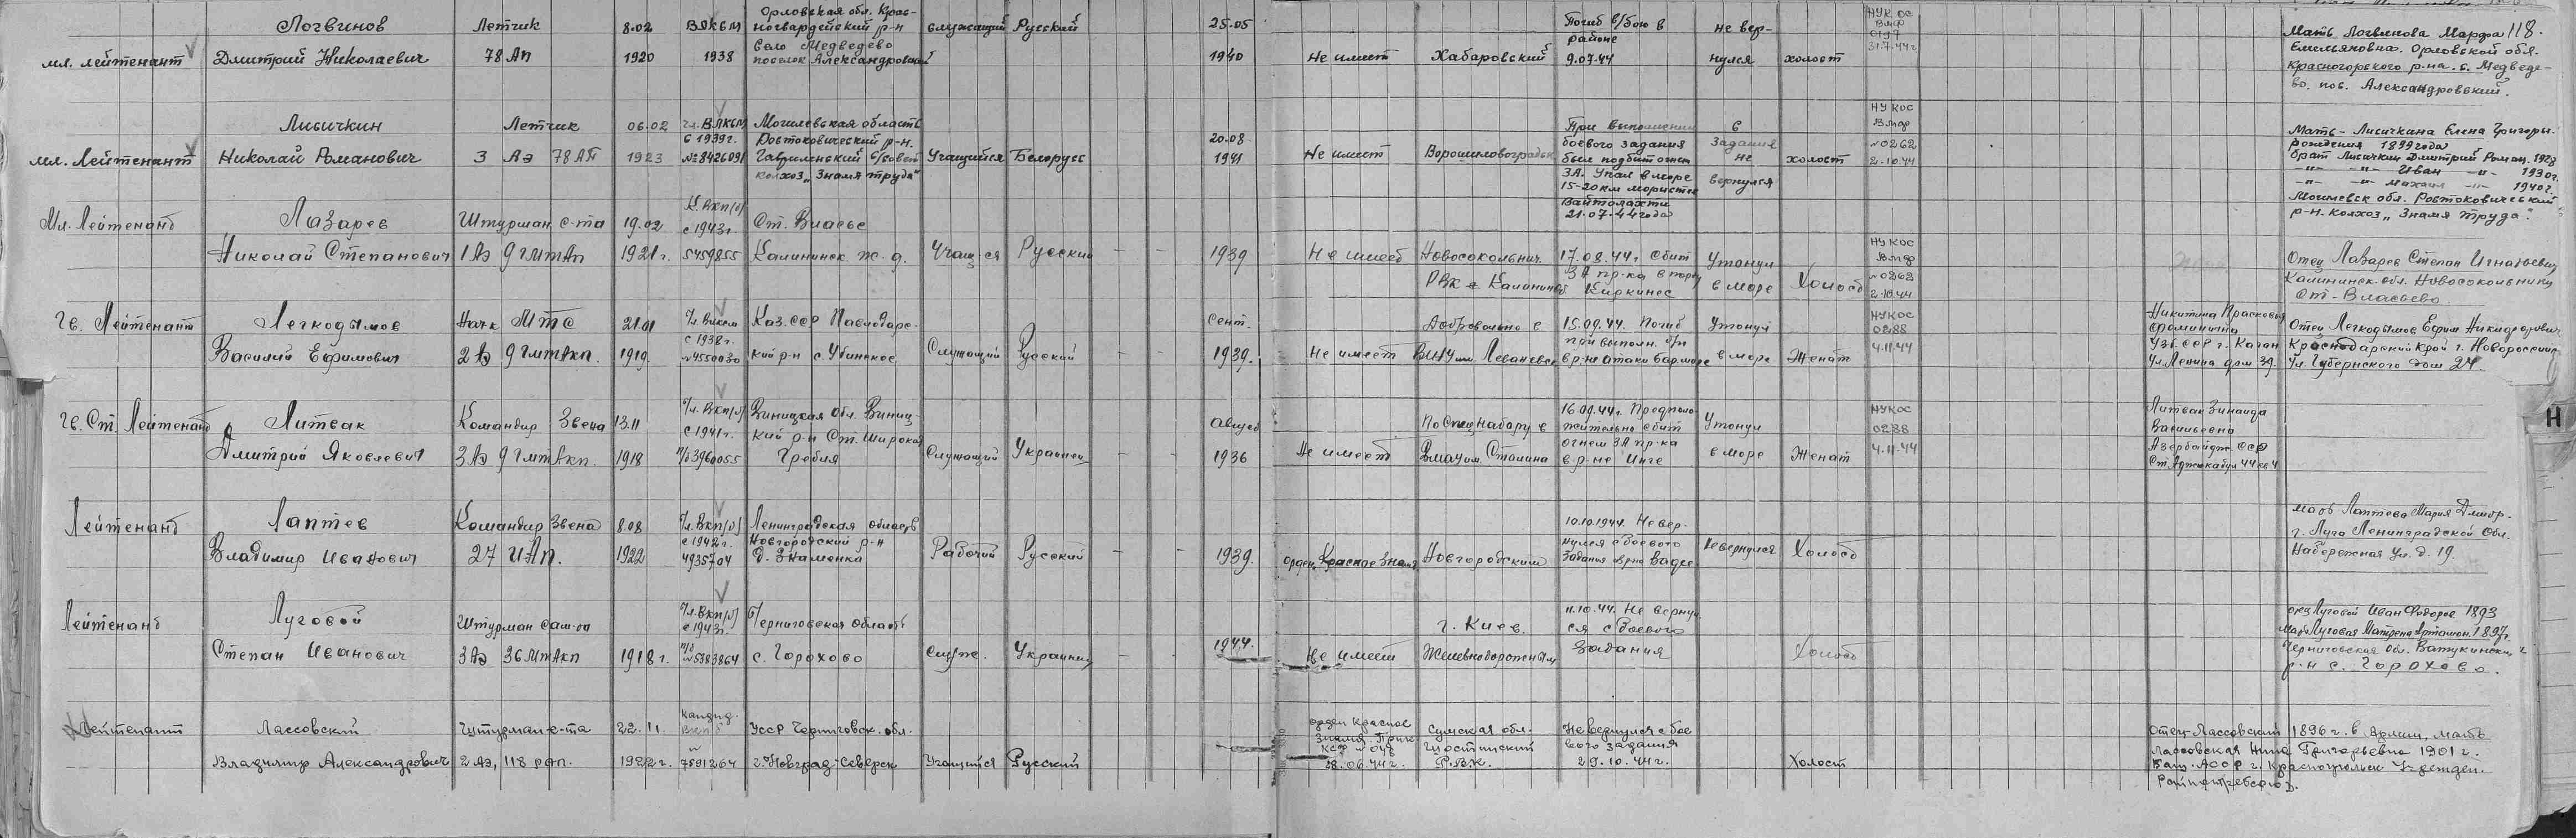 118.
мл. лейтенант
Логвинов
Дмитрий Николаевич
Летчик
78 Ап
8.02
1920
ВЛКСМ
1938
Орловская обл. Крас-
ногвардейский р-н
село Медведево
поселок Александровский
служащий
Русский
25.05
1940
Не имеет
Хабаровский
Погиб в/бою в
районе
9.07.44
не вер-
нулся
холост
НУК ОС
ВМФ
0197
31.7.44 г
Мать Логвинова Марфа
Емельяновна. Орловской обл.
Красногорского р-на. с. Медведе-
во. пос. Александровский.
мл. Лейтенант
Лисичкин
Николай Романович
Летчик
3 Аэ 78 АП
06.02
1923
чл. ВЛКСМ
с 1939 г.
№ 8426091
Могилевская область
Гаврилинский с/совет
колхоз „Знамя труда"
Учащийся
Белорусс
20.08
1941
Не имеет
Ворошиловоградск
При выполнении
боевого задания
был подбит огнем
ЗА. Упал в море
15-20 км мористее
21.07.44 года
с
задания
не
вернулся
холост
НУКОС
ВМФ
№ 0262
2.10.44
Мать - Лисичкина Елена Григорь.
рождения 1899 года
брат Лисичкин Дмитрий Роман. 1928
-"- -"- Иван -"- 1930 г.
-"- -"- Михаил -"- 1940 г.
Могилевск обл. Ростоковичский
р-н. колхоз „Знамя труда".
Мл. Лейтенант
Лазарев
Николай Степанович
Штурман с-та
1 Аэ 9 гмтАп
19.02
1921 г.
К. ВКП(б)
с 1943 г.
5459855
Ст. Власье
Калининск ж. д.
Учащ-ся
Русский
1939
Не имеет
Новосокольнич.
РВК Калининс об
17.08.44 г Сбит
ЗА пр-ка в порту
Киркинес
Утонул
в море
Холост
НУКОС
ВМФ
№ 0262
2.10.44
Отец Лазарев Степан Игнатьевич
Калининск. обл. Новосокольники
ст. Власьево.
Гв. Лейтенант
Легкодымов
Василий Ефимович
Нач-к МТС
2 Аэ 9 гмтАкп.
21.01
1919
Чл. ВЛКСМ
с 1938 г.
№ 4550030
Каз. ССР Павлодарс-
кий р-н с. Убинское
Служащий
Русский
Сент.
1939.
Не имеет
Добровольно в
ВМАУ им. Леваневск
15.09.44. Погиб
при выполн. б/з
в р-не атаки бар. море
Утонул
в море
Женат
НУКОС
0288
4.11.44
Никитина Прасковья
Фоминична
Узб. ССР г. Каган
Ул. Ленина дом 39.
Отец Легкодымов Ефим Никифорович
Краснодарский край г. Новороссийск
Ул. Губернского дом 24.
Гв. Ст. Лейтенант
Литвак
Дмитрий Яковлевич
Командир Звена
3 Аэ 9 гмтАкп.
13.11
1918
Чл. ВКП(б)
с 1941 г.
п/б 3960055
Виницкая обл. Виниц-
кий р-н Ст. Широкая
Гребля
Служащий
Украинец
Август
1936
Не имеет
По Спецнабору в
ВМАУ им. Сталина
16.09.44 г. Предполо-
жительно сбит
огнем ЗА пр-ка
в р-не Инге
Утонул
в море
Женат
НУКОС
0288
4.11.44
Литвак Зинаида
Васильевна
Азербайдж. ССР
Ст. Аджикабул 44 кв 4
Лейтенант
Лаптев
Владимир Иванович
Командир Звена
27 ИАП.
8.08
1922
Чл. ВКП(б)
с 1942 г.
4935704
Ленинградская область
Новгородский р-н
д. Знаменка
Рабочий
Русский
1939.
орден Красное Знамя
Новгородским
10.10.1944. Не вер-
нулся с боевого
задания в р-не Вадсе
Не вернулся
Холост
мать Лаптева Мария Дмитр.
г. Луга Ленинградской Обл.
Набережная ул. д. 19.
Лейтенант
Луговой
Степан Иванович
Штурман сам-та
3 Аэ 36 МтАкп
1918 г.
Чл. ВКП(б)
с 1943 г.
п/б
№ 5383864
Черниговская область
с. Горохово
Служ.
Украинец
1944.
Не имеет
г. Киев.
Железнодорожным
11.10.44. Не вернул-
ся с боевого
Задания
Холост
отец Луговой Иван Федоров 1893
Мать Луговая Матрена Артамон. 1897 г.
Черниговская обл. Батукински
р-н с. Горохово.
Лейтенант
Лассовский
Владимир Александрович
Штурман с-та
2 Аэ, 118 рап.
22.11.
1922 г.
Кандид.
ВКПб
№
7591264
УССР Черниговск. обл.
г. Новград-Северск
Учащийся
Русский
орден Красное
Знамя. Приk.
КСФ № 048
28.06.44 г.
Сумская обл.
Шосткинский
Р.В.К.
Не вернулся с бое
вого задания
29.10.44 г.
Холост
Отец-Лассовский 1896 г. в Армии, мать
Лассовская Нина Григорьевна 1901 г.
Баш. АССР г. Красноусольск
Н